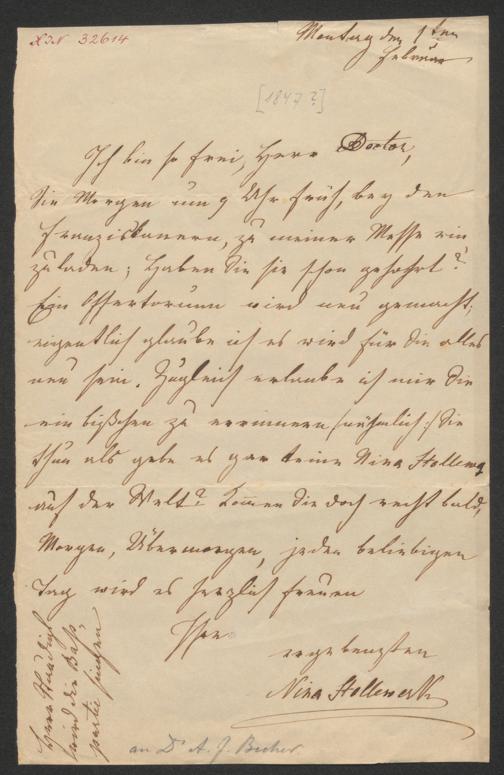 I.N 32614
Montag den 1ten
Februar
[1847?]
Ich bin so frei, Herr Doctor,
Sie Morgen um 9 Uhr früh, bey den
Franziskanern, zu meiner Messe ein
zuladen; haben Sie sie schon gehöhrt?
Ein Offertorium wird neu gemacht;
eigentlich glaube ich es wird für Sie alles
neu sein. Zugleich erlaube ich mir Sie
ein bißchen zu errinnern (nähmlich:) Sie
thun als gebe es gar keine Nina Stollewerk
auf der Welt? Kommen Sie doch recht bald,
Morgen, Übermorgen, jeden beliebigen
Tag wird es herzlich freuen
Ihre
ergebensten
Nina Stollewerk
Herr Staudigl
wird die Baß
partie singen
an Dr A. J. Becher.